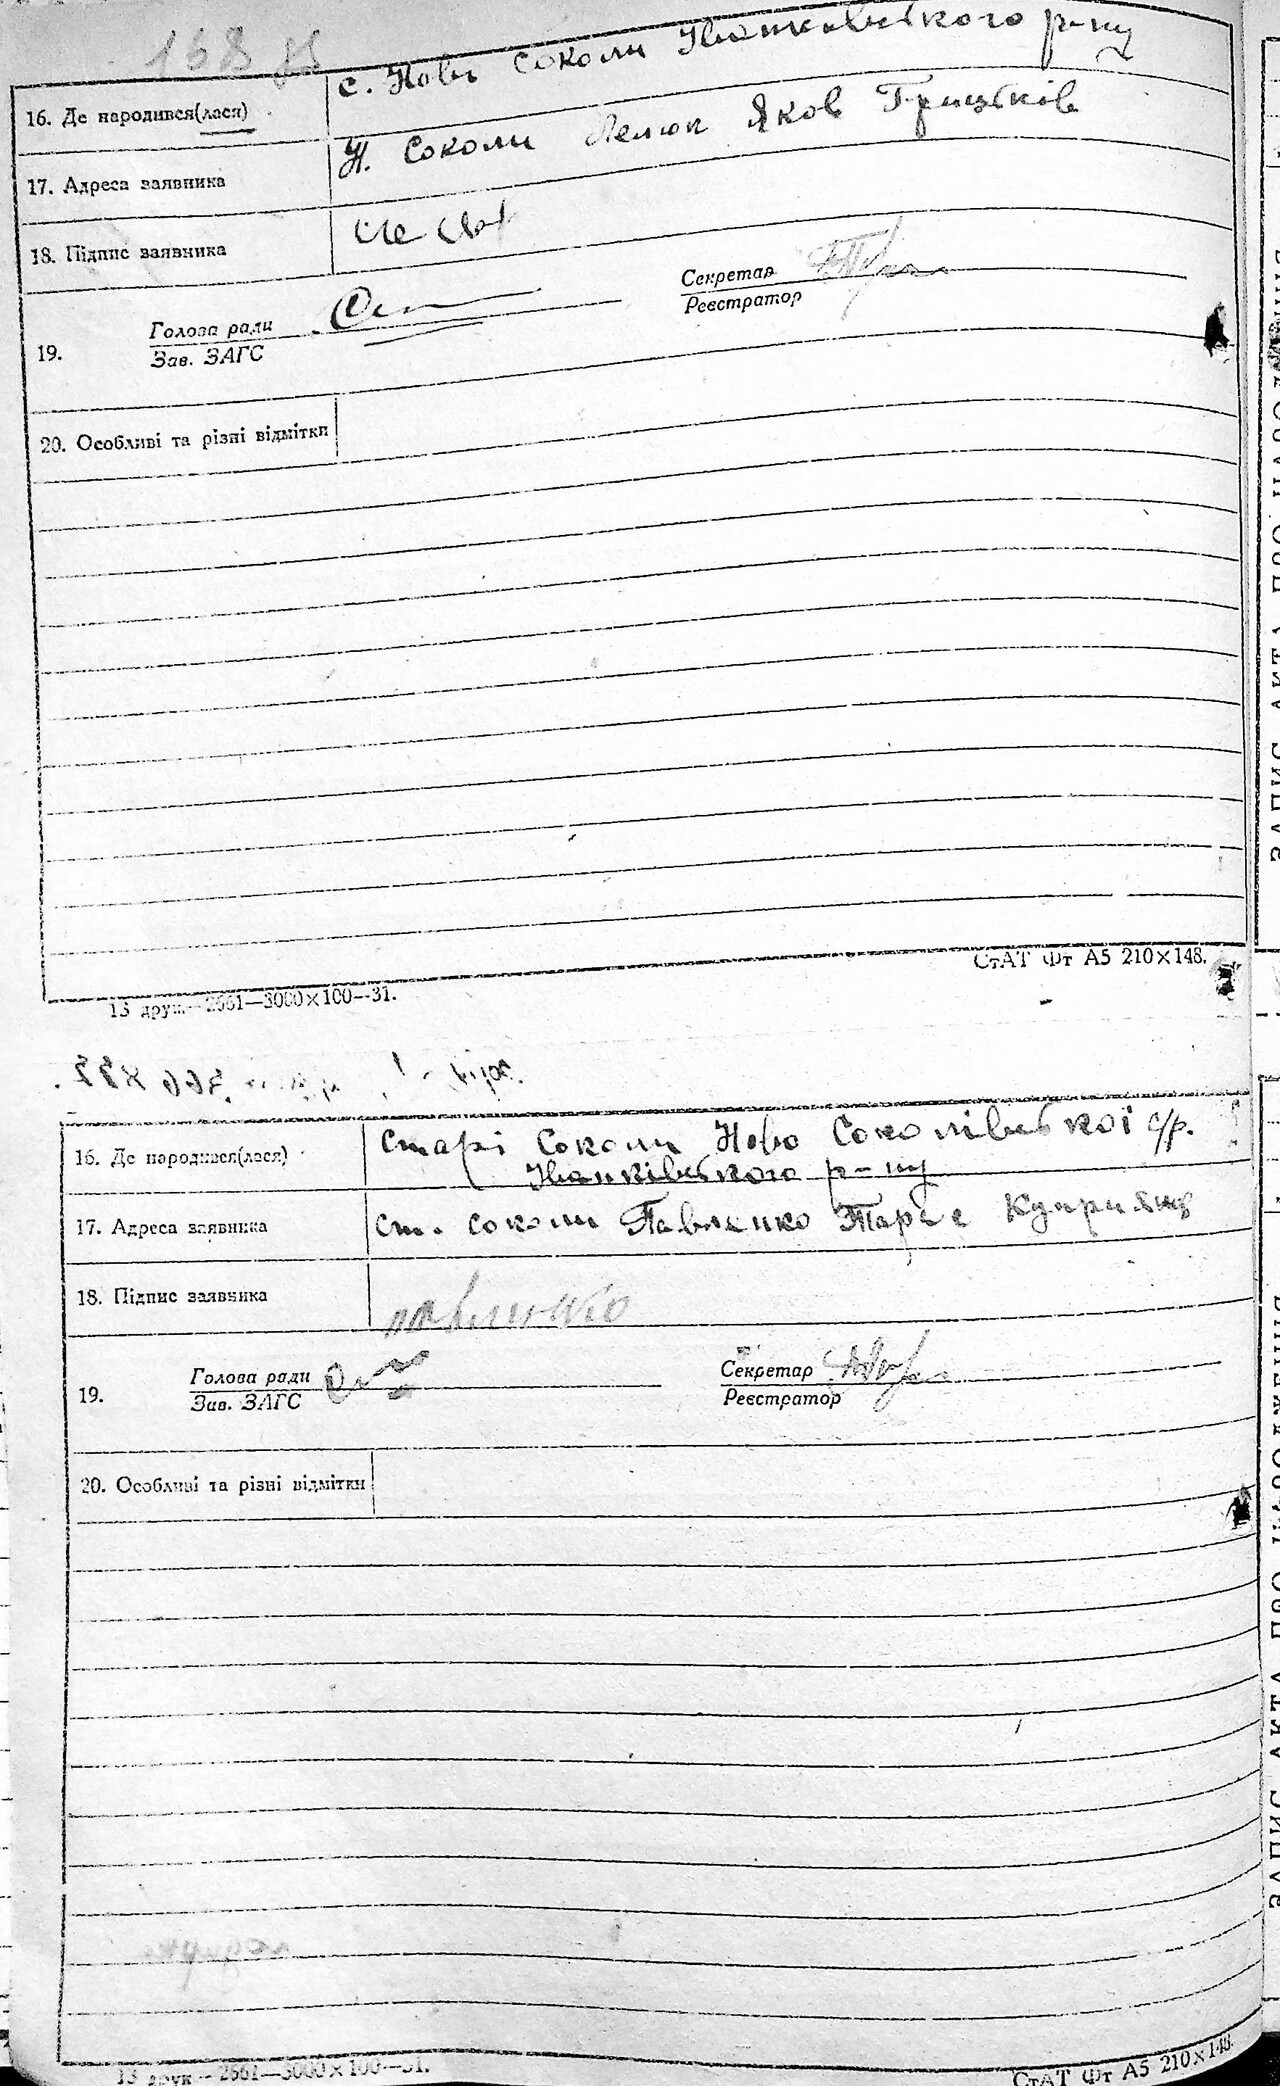 168
16. Де народився(лася) с. Нові Соколи Іванківського р-ну
17. Адреса заявника Н. Соколи Яков Грицьків
18. Підпис заявника
19. Голова ради Секретар
Зав. ЗАГС Реєстратор
20. Особливі та різні відмітки
СтАТ Фт А5 210×148.
13 друк—2661—3000×100—31.
16. Де народився(лася) Старі Соколи Ново Соколівської с/р.
Іванківського р-ну
17. Адреса заявника Ст. Соколи Павленко Тарас
18. Підпис заявника павленко
19. Голова ради Секретар
Зав. ЗАГС Реєстратор
20. Особливі та різні відмітки
13 друк—2661—3000×100—31.
СтАТ Фт А5 210×148.